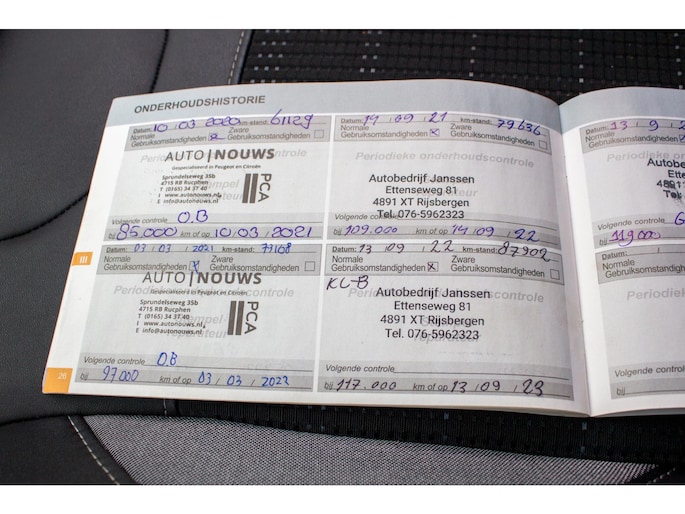 ONDERHOUDSHISTORIE
Datum: 10 / 03 / 2020 km-stand: 61129
Normale Gebruiksomstandigheden x Zware Gebruiksomstandigheden
Periodieke controle
AUTO|NOUWS
Gespecialiseerd in Peugeot en Citroën
Sprundelseweg 35b
4715 RB Rucphen
T (0165) 34 37 40
I www.autonouws.nl
E info@autonouws.nl
PCA
Stempel
reparateur
Volgende controle O.B
bij 85.000 km of op 10 / 03 / 2021
Datum: 14 / 09 / 21 km-stand: 79636
Normale Gebruiksomstandigheden x Zware Gebruiksomstandigheden
Periodieke onderhoudscontrole
Autobedrijf Janssen
Ettenseweg 81
4891 XT Rijsbergen
Tel. 076-5962323
Volgende controle
bij 109.000 km of op 14 / 09 / 22
III
Datum: 03 / 03 / 2021 km-stand: 77108
Normale Gebruiksomstandigheden x Zware Gebruiksomstandigheden
AUTO|NOUWS
Gespecialiseerd in Peugeot en Citroën
Sprundelseweg 35b
4715 RB Rucphen
T (0165) 34 37 40
I www.autonouws.nl
E info@autonouws.nl
PCA
reparateur
Volgende controle O.B
bij 97000 km of op 03 / 03 / 2022
Datum: 13 / 09 / 22 km-stand: 87902
Normale Gebruiksomstandigheden x Zware Gebruiksomstandigheden
KL-B
Autobedrijf Janssen
Ettenseweg 81
4891 XT Rijsbergen
Tel. 076-5962323
Volgende controle
bij 117.000 km of op 13 / 09 / 23
26
Datum: 13 / 9 /
Normale
Gebruiksomstandigheden
Periodieke
Volgende controle
bij 119.000
Datum:
Normale
Gebruiksomstandigheden
Periodieke
Volgende controle
bij